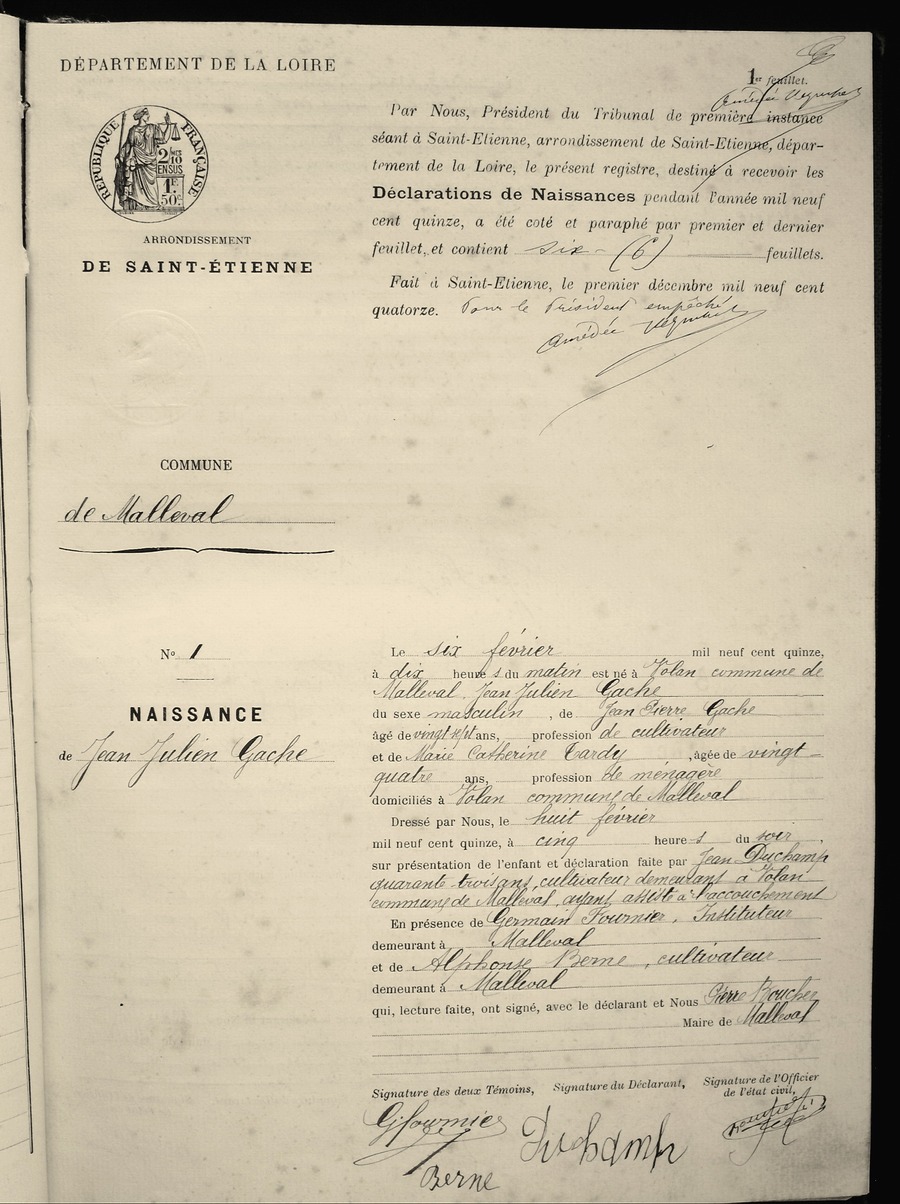 DÉPARTEMENT DE LA LOIRE
RÉPUBLIQUE FRANÇAISE
2/10
EN SUS
1F.
50c.
ARRONDISSEMENT
DE SAINT-ÉTIENNE
1er feuillet.
Amédée
Par Nous, Président du Tribunal de première instance
séant à Saint-Etienne, arrondissement de Saint-Etienne, dépar-
tement de la Loire, le présent registre, destiné à recevoir les
Déclarations de Naissances pendant l'année mil neuf
cent quinze, a été coté et paraphé par premier et dernier
feuillet, et contient six - (6) feuillets.
Fait à Saint-Etienne, le premier décembre mil neuf cent
quatorze. Pour le Président empêché
Amédée
COMMUNE
de Malleval
No 1
NAISSANCE
de Jean Julien Gache
Le six février mil neuf cent quinze,
à dix heures du matin est né à Volan commune de
Malleval Jean Julien Gache
du sexe masculin, de Jean Pierre Gache
âgé de vingt sept ans, profession de cultivateur
et de Marie Catherine Tardy, âgée de vingt-
quatre ans, profession de ménagère
domiciliés à Volan commune de Malleval
Dressé par Nous, le huit février
mil neuf cent quinze, à cinq heures du soir,
sur présentation de l'enfant et déclaration faite par Jean Duchamp
quarante trois ans, cultivateur demeurant à Volan
commune de Malleval, ayant assisté à l'accouchement
En présence de Germain Fournier, Instituteur
demeurant à Malleval
et de Alphonse Berne, cultivateur
demeurant à Malleval
qui, lecture faite, ont signé, avec le déclarant et Nous Pierre Boucher
Maire de Malleval
Signature des deux Témoins, Signature du Déclarant, Signature de l'Officier
de l'état civil,
G. Fournier
Duchamp
Berne